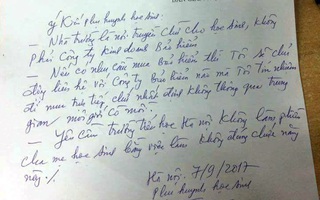 Ý kiến phụ huynh học sinh:
- Nhà trường là nơi truyền chữ cho học sinh, không
phải công ty kinh doanh bảo hiểm
- Nếu có nhu cầu mua bảo hiểm thì tôi sẽ chủ
động liên hệ với công ty bảo hiểm nào mà tôi tín nhiệm
để mua trực tiếp, chứ nhất định không thông qua trung
gian, môi giới cò mồi.
- Yêu cầu trường tiểu học Hà Nội không làm phiền
cha mẹ học sinh bằng việc làm không đúng chức năng
này./.
Hà Nội 7/9/2017
Phụ huynh học sinh